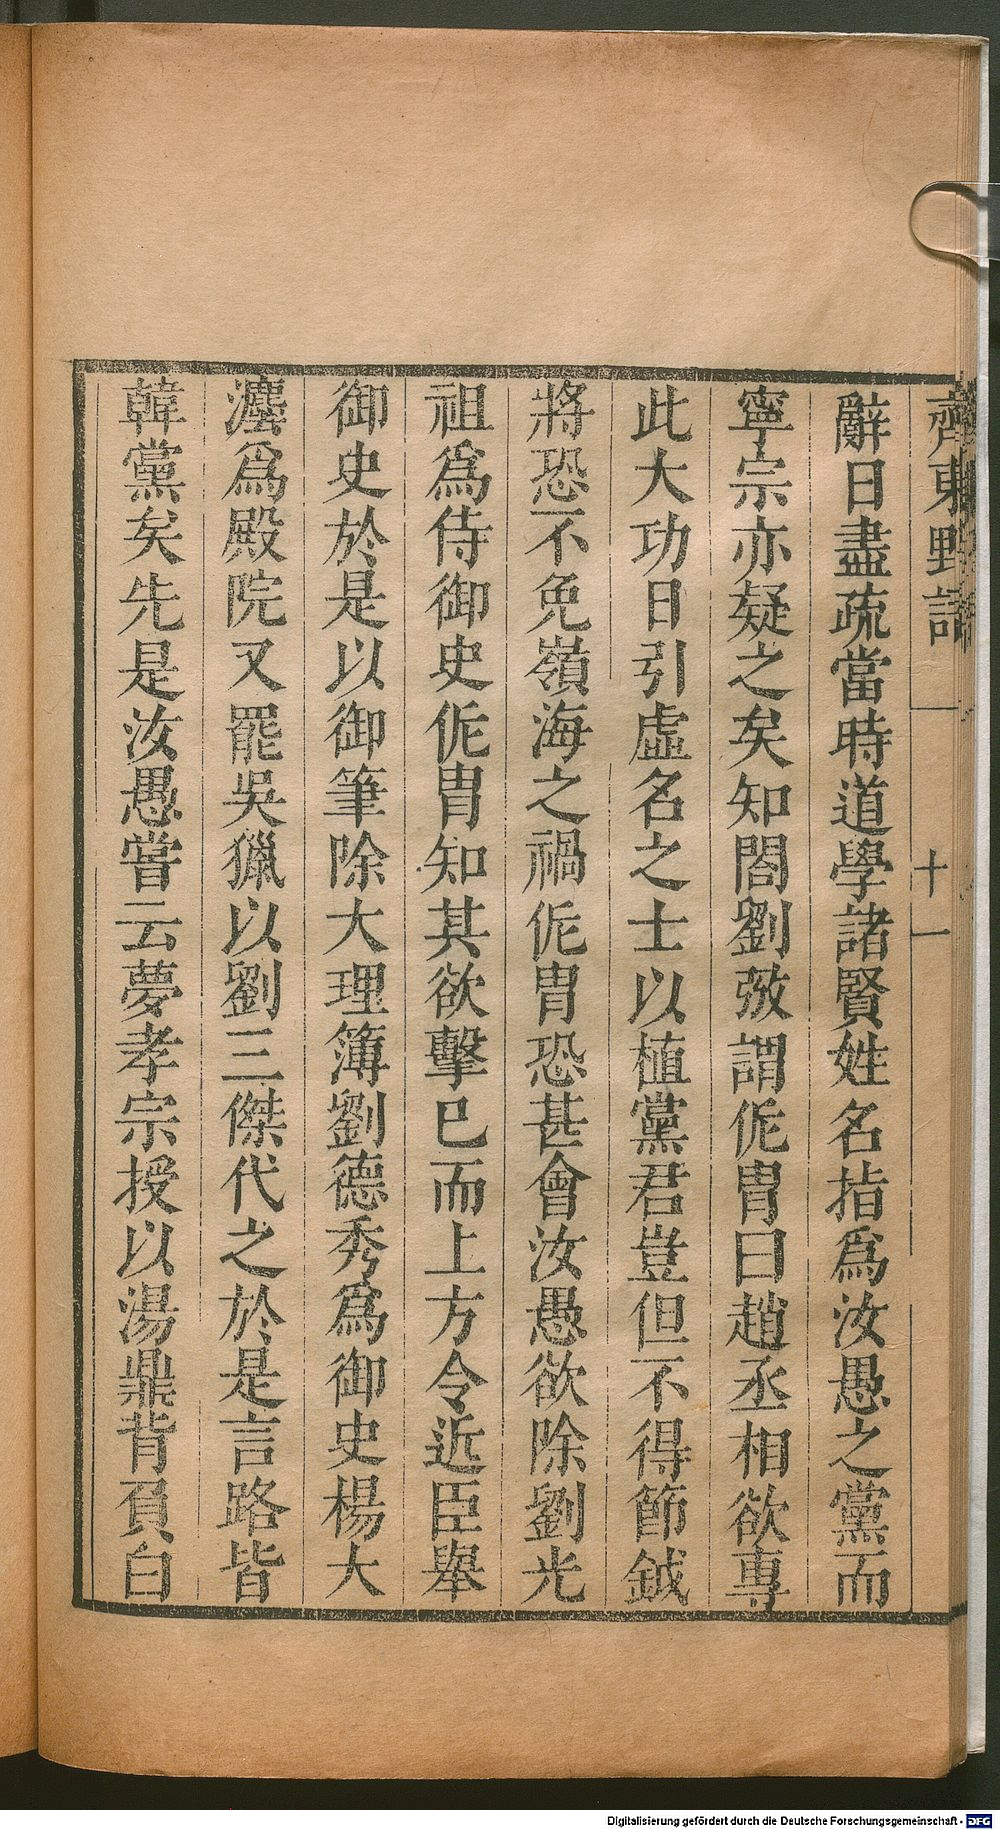 齊東野語
十一
辭日盡疏當時道學諸賢姓名指爲汝愚之黨而
寧宗亦疑之矣知閤劉弢謂侂冑曰趙丞相欲專
此大功日引虛名之士以植黨君豈但不得節鉞
將恐不免嶺海之禍侂冑恐甚會汝愚欲除劉光
祖爲侍御史侂冑知其欲擊已而上方令近臣舉
御史於是以御筆除大理簿劉德秀爲御史楊大
灋爲殿院又罷吳獵以劉三傑代之於是言路皆
韓黨矣先是汝愚嘗云夢孝宗授以湯鼎背負白
Digitalisierung gefördert durch die Deutsche Forschungsgemeinschaft - DFG